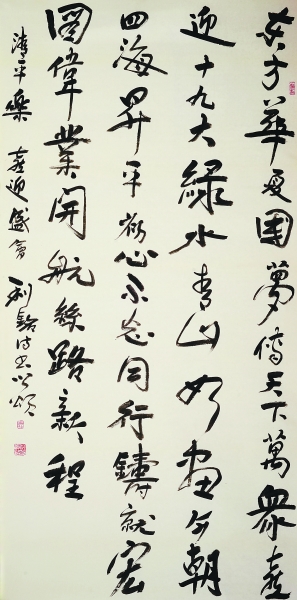 东方華夏圓夢傳天下萬衆喜
迎十九大綠水青山如畫今朝
四海昇平初心不忘同行鑄就宏
圖偉業開航絲路新程
清平樂 喜迎盛會 利詩书以頌